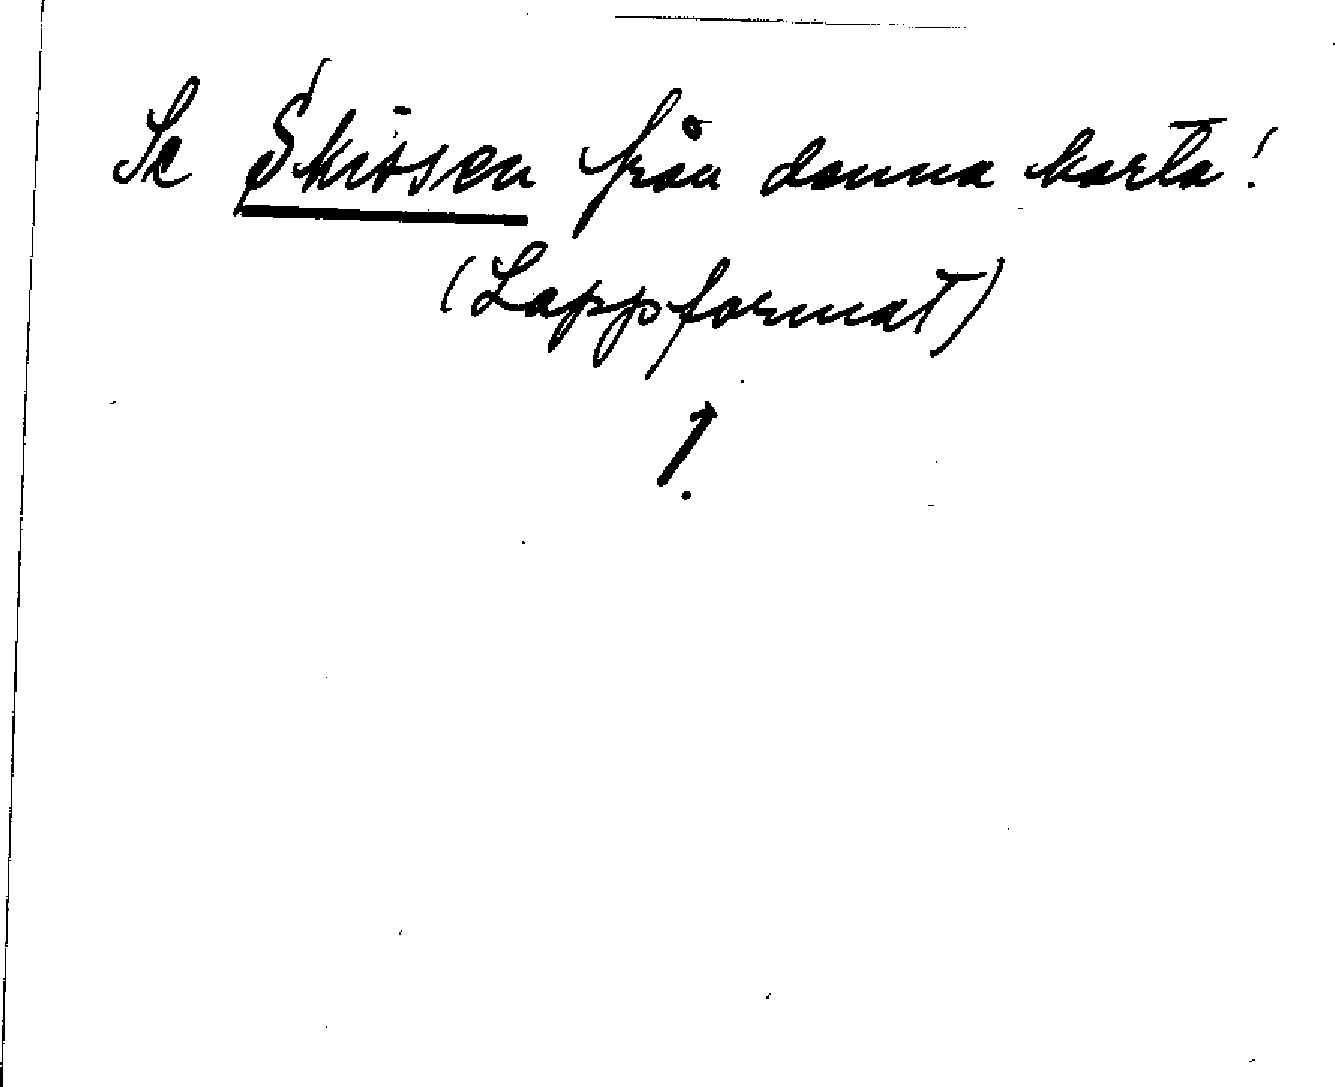 Se Skissen från denna karta!
(Lappformat)
!